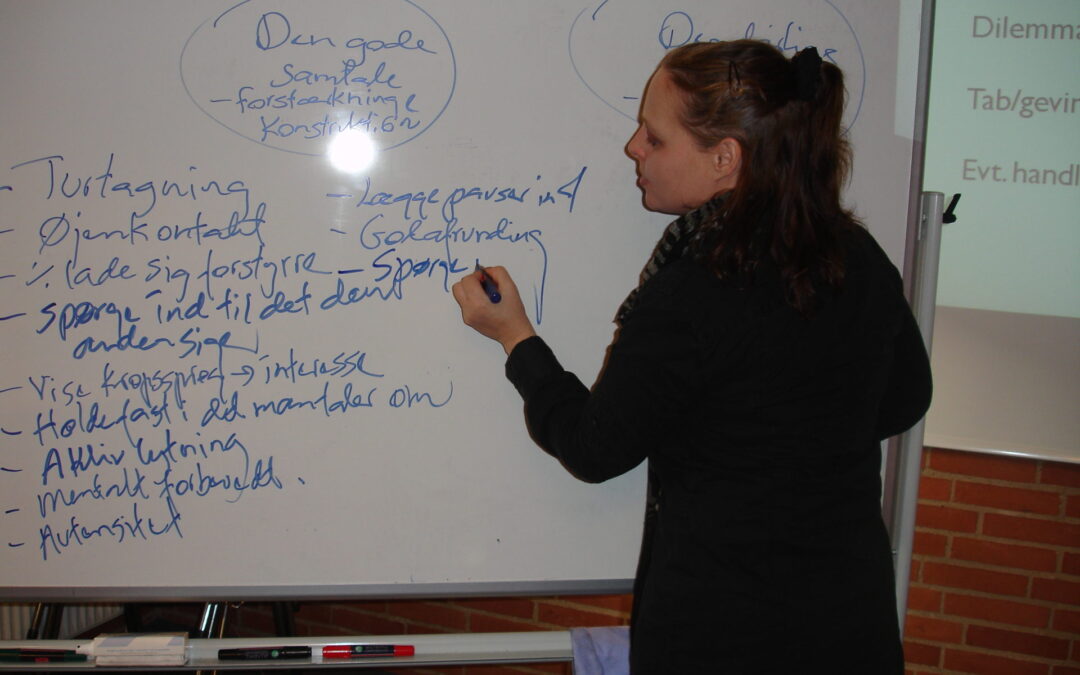 Den gode
samtale
- forstærkning
- Turtagning
- Øjenkontakt
- ٪ lade sig forstyrre
- Spørge ind til det den
anden siger
- Vise kropssprog → interesse
- Holde fast i det man taler om
- Aktiv lytning
- Mentalt forberedt.
- Autensitet
- Lægge pauser ind
- Godafrunding
- Spørge
Den
Dilemma
Tab/gevin
Evt. handl